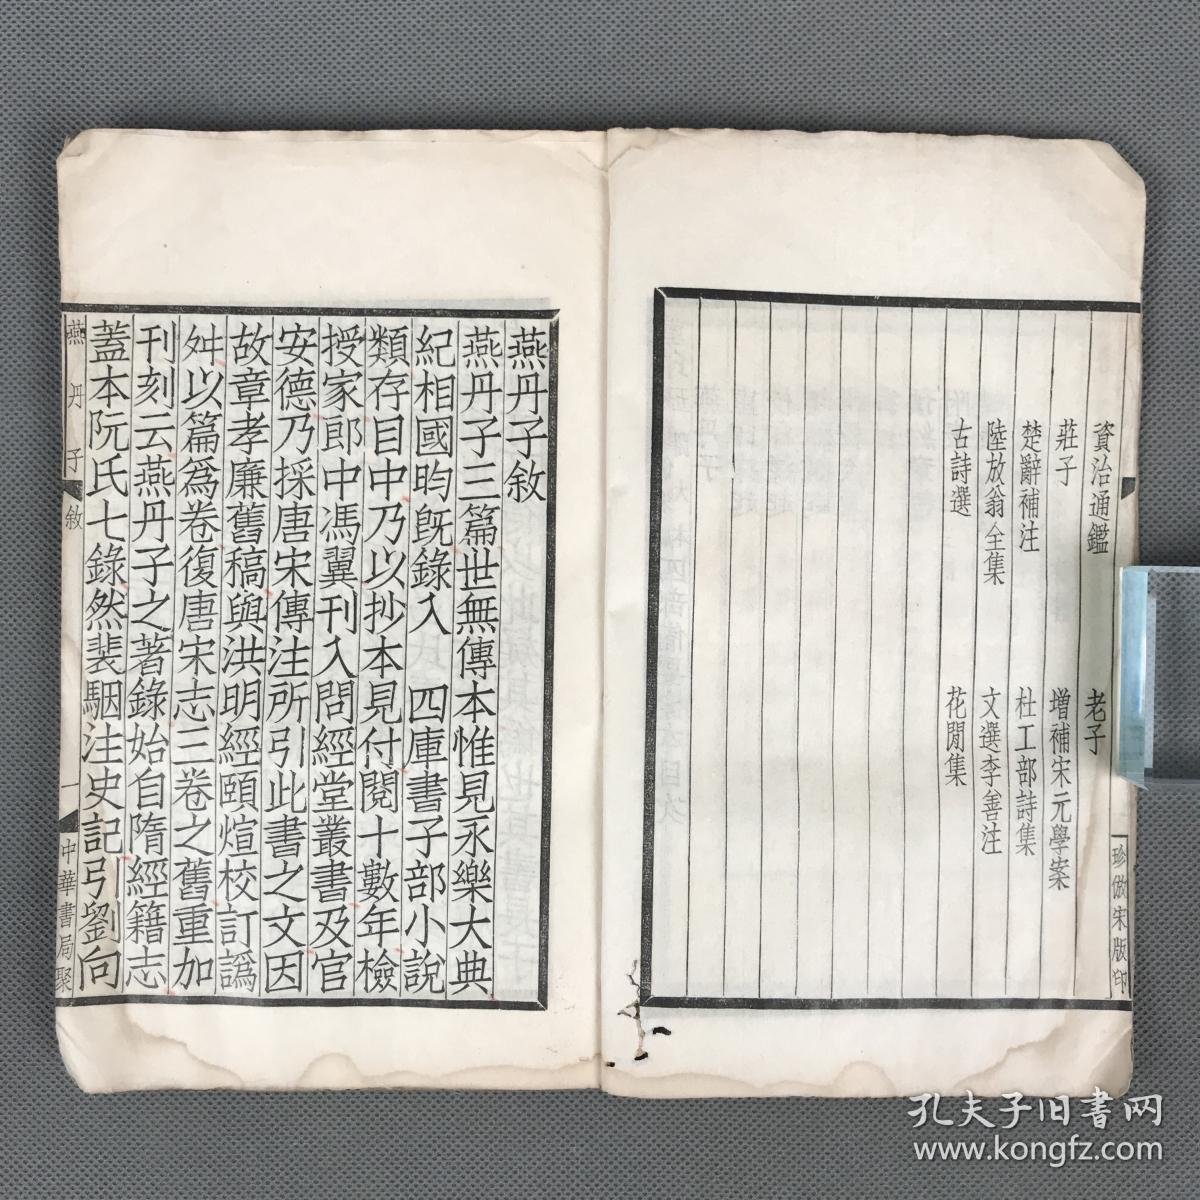 資治通鑑 老子
莊子 增補宋元學案
楚辭補注 杜工部詩集
陸放翁全集 文選李善注
古詩選 花間集
珍倣宋版印
燕丹子敘
燕丹子三篇世無傳本惟見永樂大典
紀相國昀旣錄入 四庫書子部小說
類存目中乃以抄本見付閱十數年檢
授家郎中馮翼刊入問經堂叢書及官
安德乃採唐宋傳注所引此書之文因
故章孝廉舊稿與洪明經頤煊校訂譌
舛以篇爲卷復唐宋志三卷之舊重加
刊刻云燕丹子之著錄始自隋經籍志
蓋本阮氏七錄然裴駰注史記引劉向
燕丹子敘 一 中華書局聚
孔夫子旧书网
www.kongfz.com